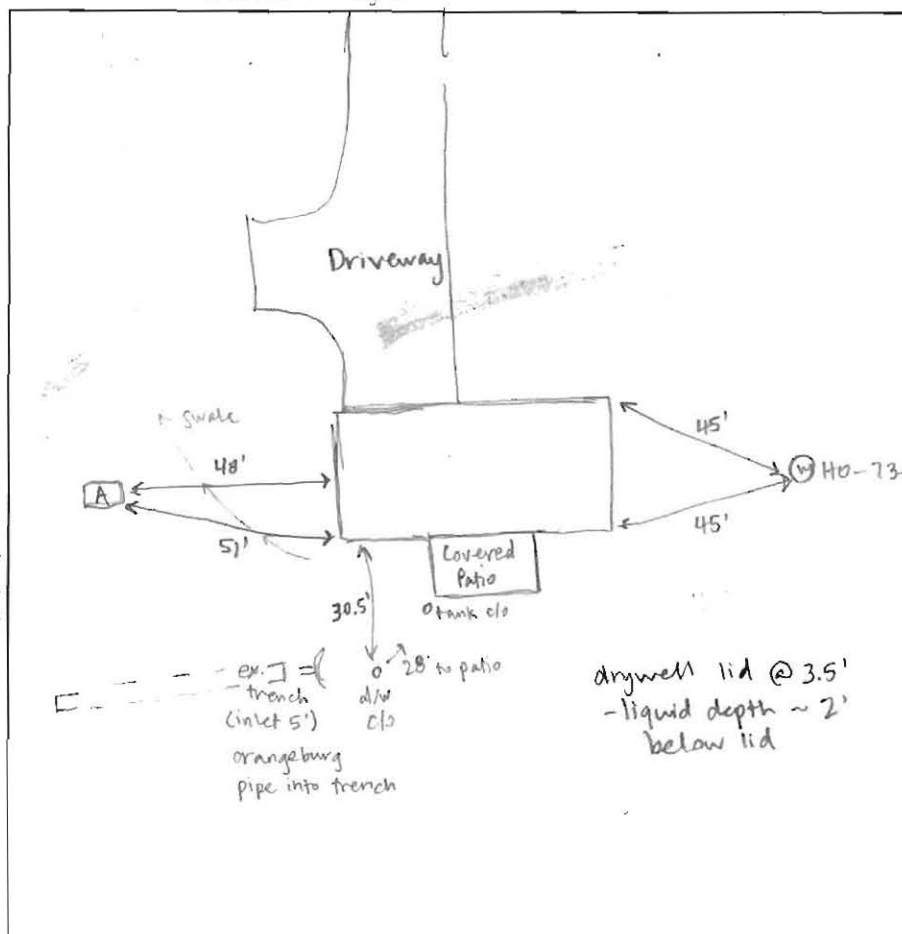 Driveway
swale
48'
A
45'
W HO-73-
51'
45'
Covered
Patio
30.5'
tank c/o
ex.
28' to patio
trench
d/w
(inlet 5')
c/o
orangeburg
pipe into trench
drywell lid @ 3.5'
-liquid depth ~ 2'
below lid